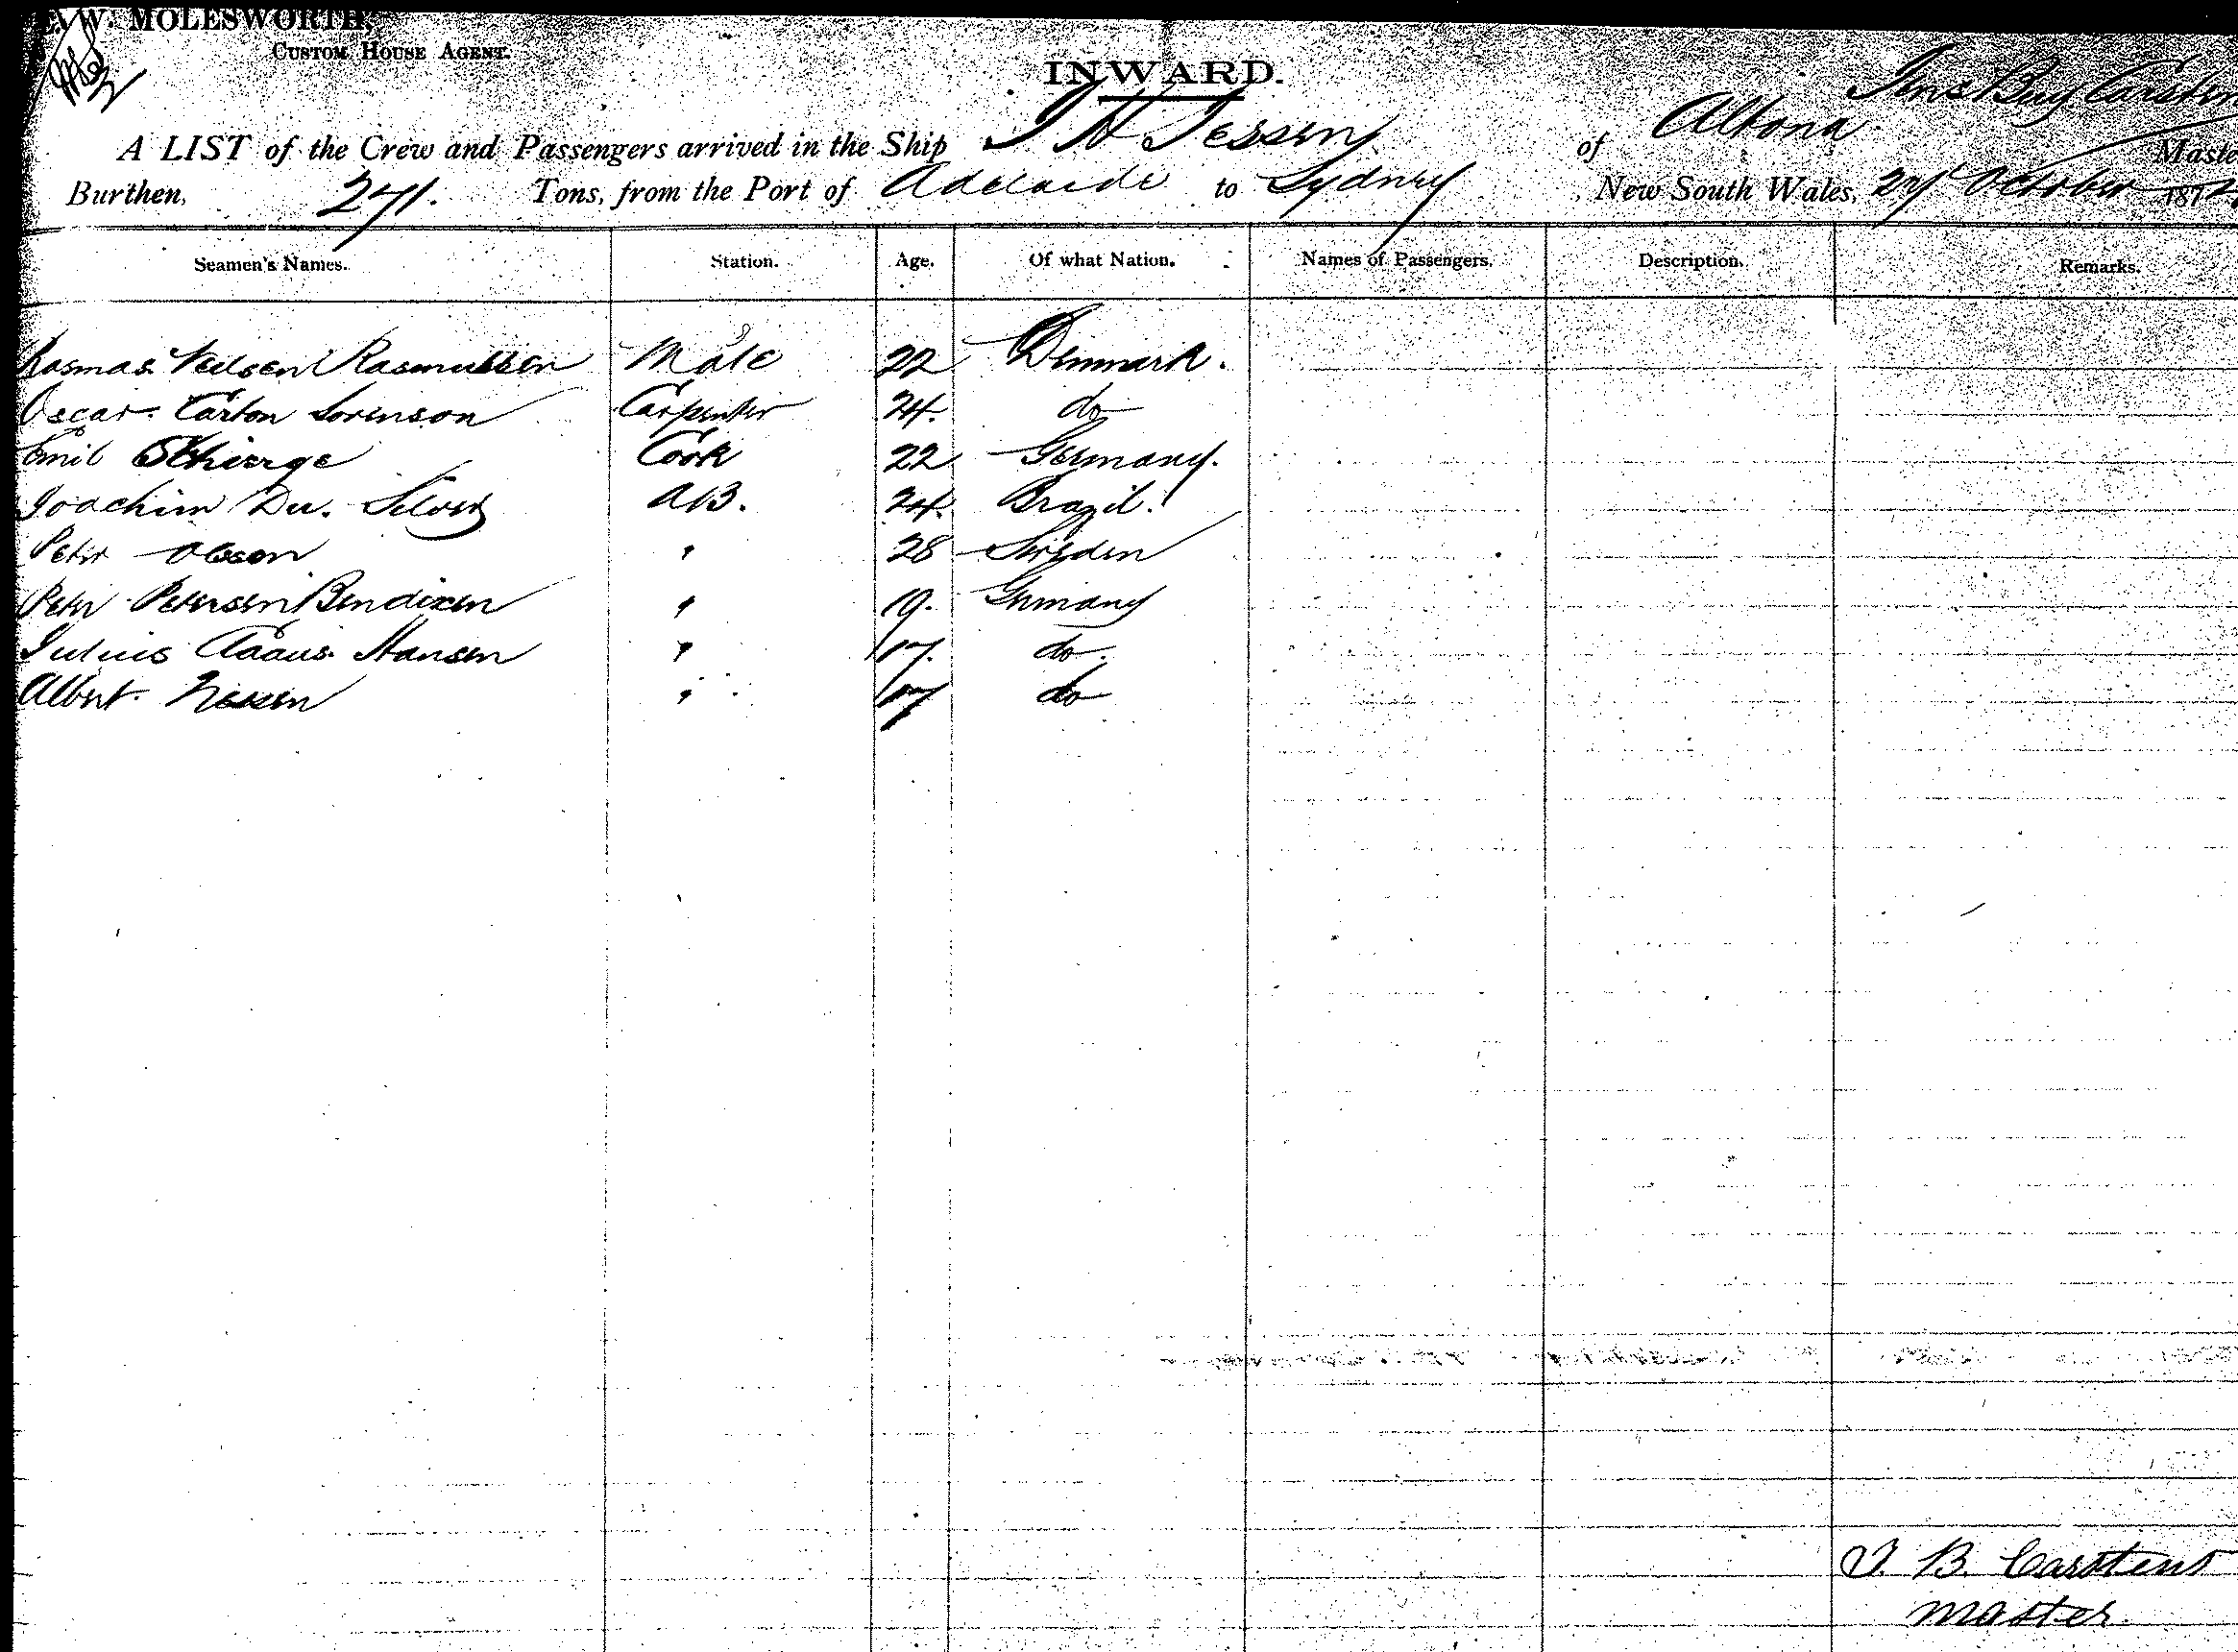 W. MOLESWORTH,
CUSTOM HOUSE AGENT.
INWARD.
A LIST of the Crew and Passengers arrived in the Ship J H Jessen of Altona Jens Buy Carsten Master
Burthen, 271. Tons, from the Port of Adelaide to Sydney New South Wales, 27 October 187
Seamen's Names. Station. Age. Of what Nation. Names of Passengers. Description. Remarks.
Rasmas Neilsen Rasmussen Mate 22 Denmark.
Oscar Carlton Sorenson Carpenter 24. do
Emil Cook 22 Germany.
Joachim Du. Silva AB. 24. Brazil.
Peter Olsson " 28 Sweden
Peter Petersen Bendixen " 19. Germany
Julius Claaus. Hansen " 17. do.
Albert " 17 do
J. B. Carstens
Master